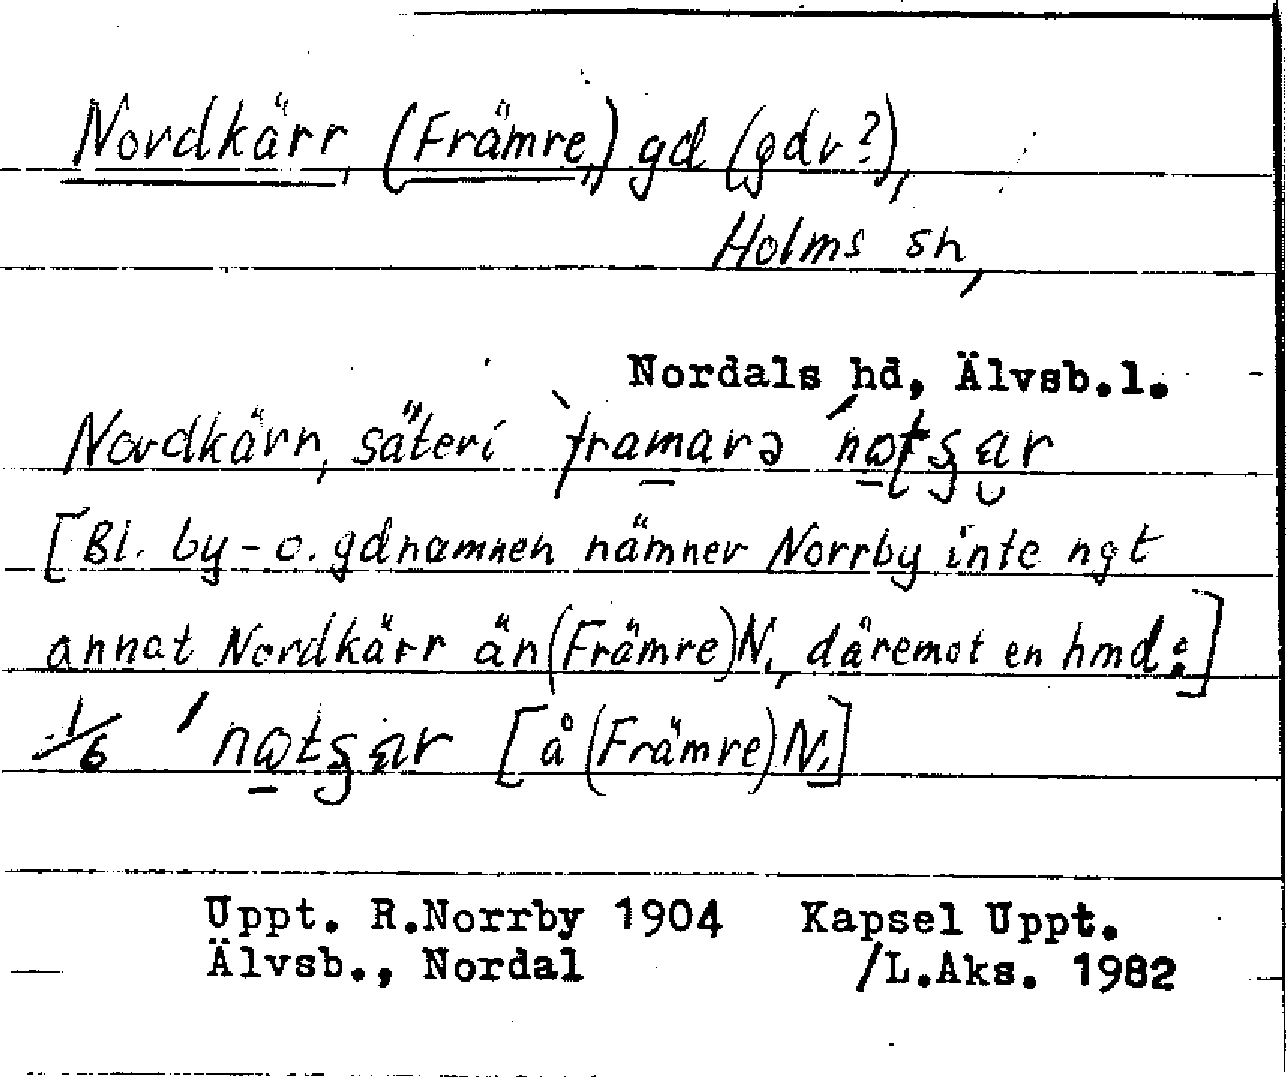 Nordkärr, (Främre,) gd (gdr?),
Holms sn,
Nordals hd, Älvsb.l.
Nordkärr, säteri `framarə ´nɷtʂar
[Bl. by- o. gdnamnen nämner Norrby inte ngt
annat Nordkärr än (Främre) N., däremot en hmd:]
1/6 ´nɷtʂar [å (Främre) N.]
Uppt. R.Norrby 1904 Kapsel Uppt.
Älvsb., Nordal /L.Aks. 1982